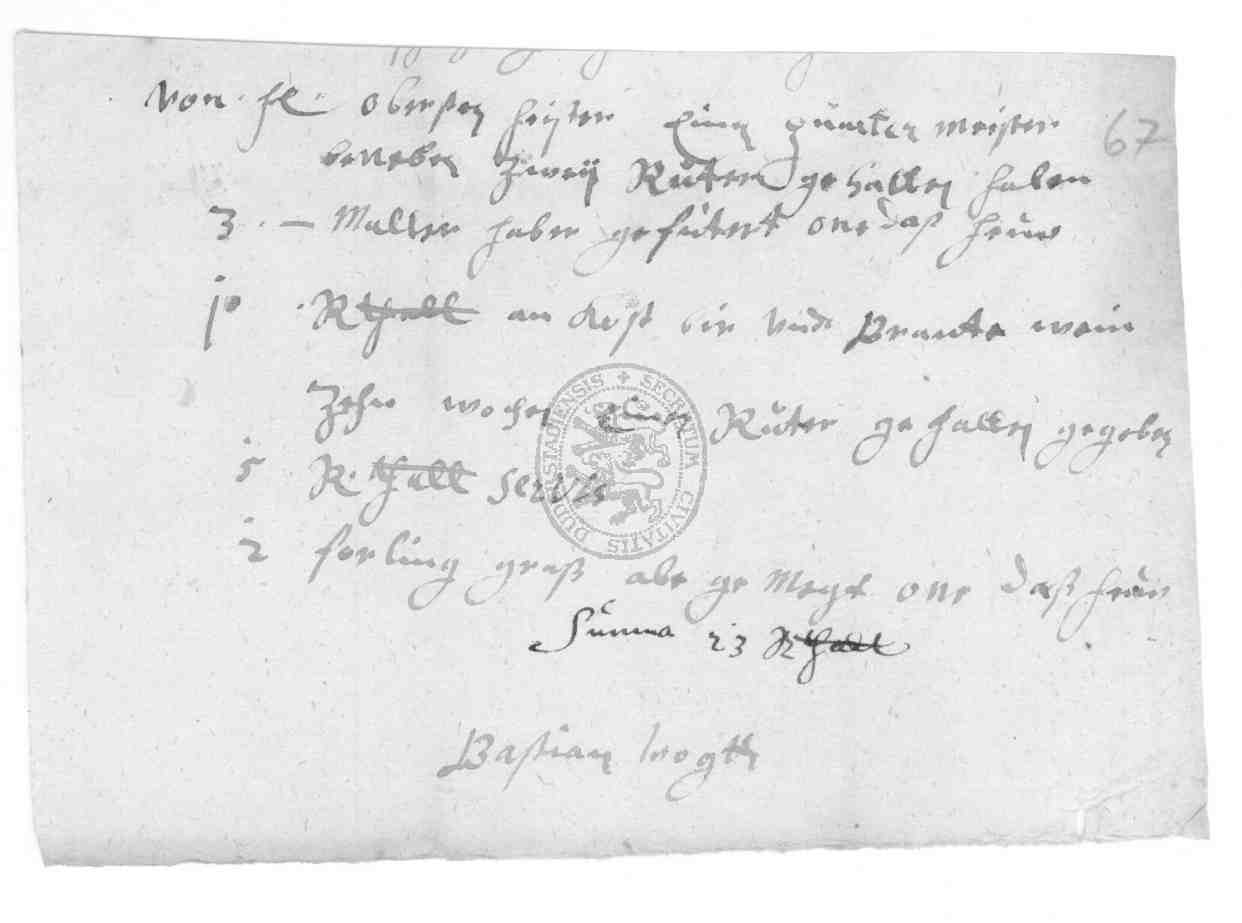 67
von h. obersten heister Einen quarter meister
beneben Zweÿ Rüter gehallten haben
3 – Mallter haber gefutert one daß heuw
10 Rthall an Kost bir vnd Brante wein
Zehn wochen Einen Rüter gehallten gegeben
5 R.thall servis
2 forling graß abe gemeyt one daß heuw
Summa 23 Rthall
Bastian Vogtt
SECRETUM CIVITATIS DUDERSTADIENSIS